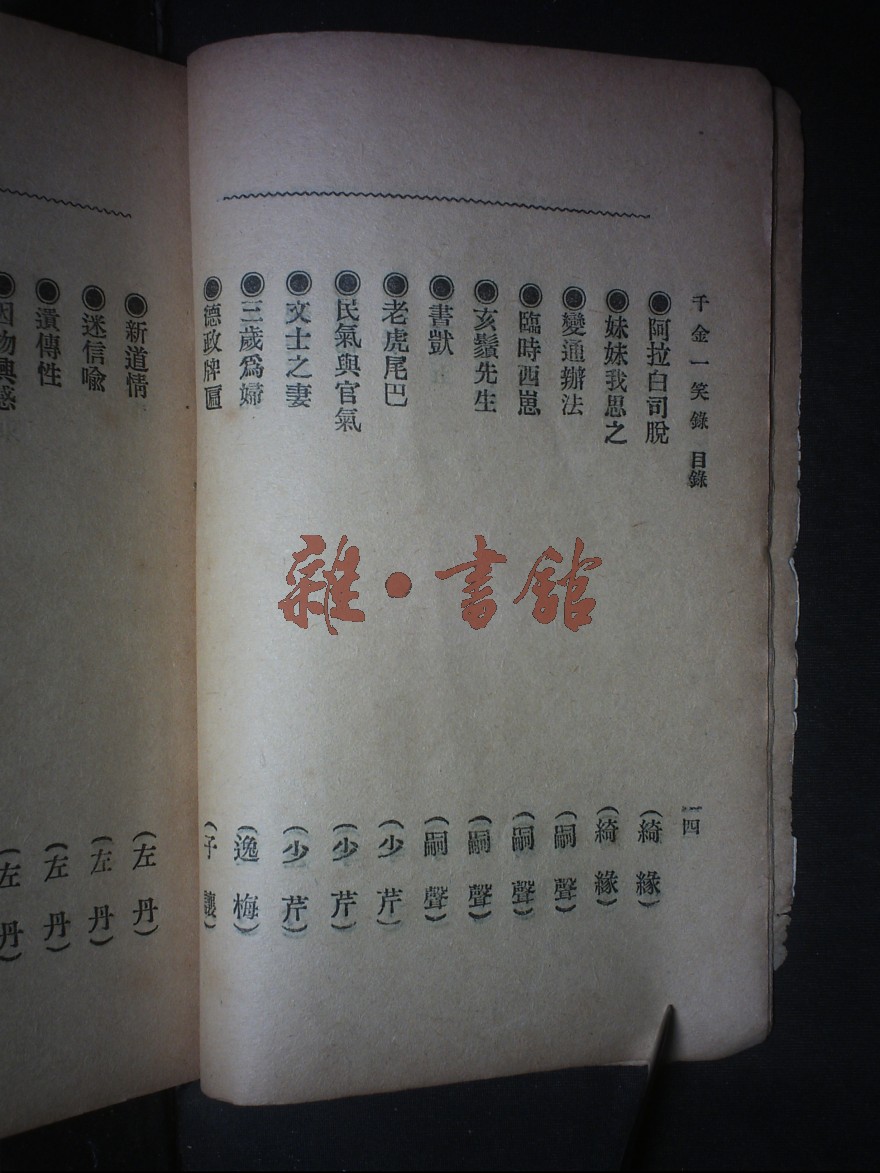 千金一笑錄 目錄 一四
◉阿拉白司脫 (綺緣)
◉妹妹我思之 (綺緣)
◉變通辦法 (嗣聲)
◉臨時西崽 (嗣聲)
◉亥鬚先生 (嗣聲)
◉書獃 (嗣聲)
◉老虎尾巴 (少芹)
◉民氣與官氣 (少芹)
◉文士之妻 (少芹)
◉三歲爲婦 (逸梅)
◉德政牌匾 (子讓)
◉新道情 (左丹)
◉迷信喩 (左丹)
◉遺傳性 (左丹)
◉因物興感 (左丹)
雜·書舘